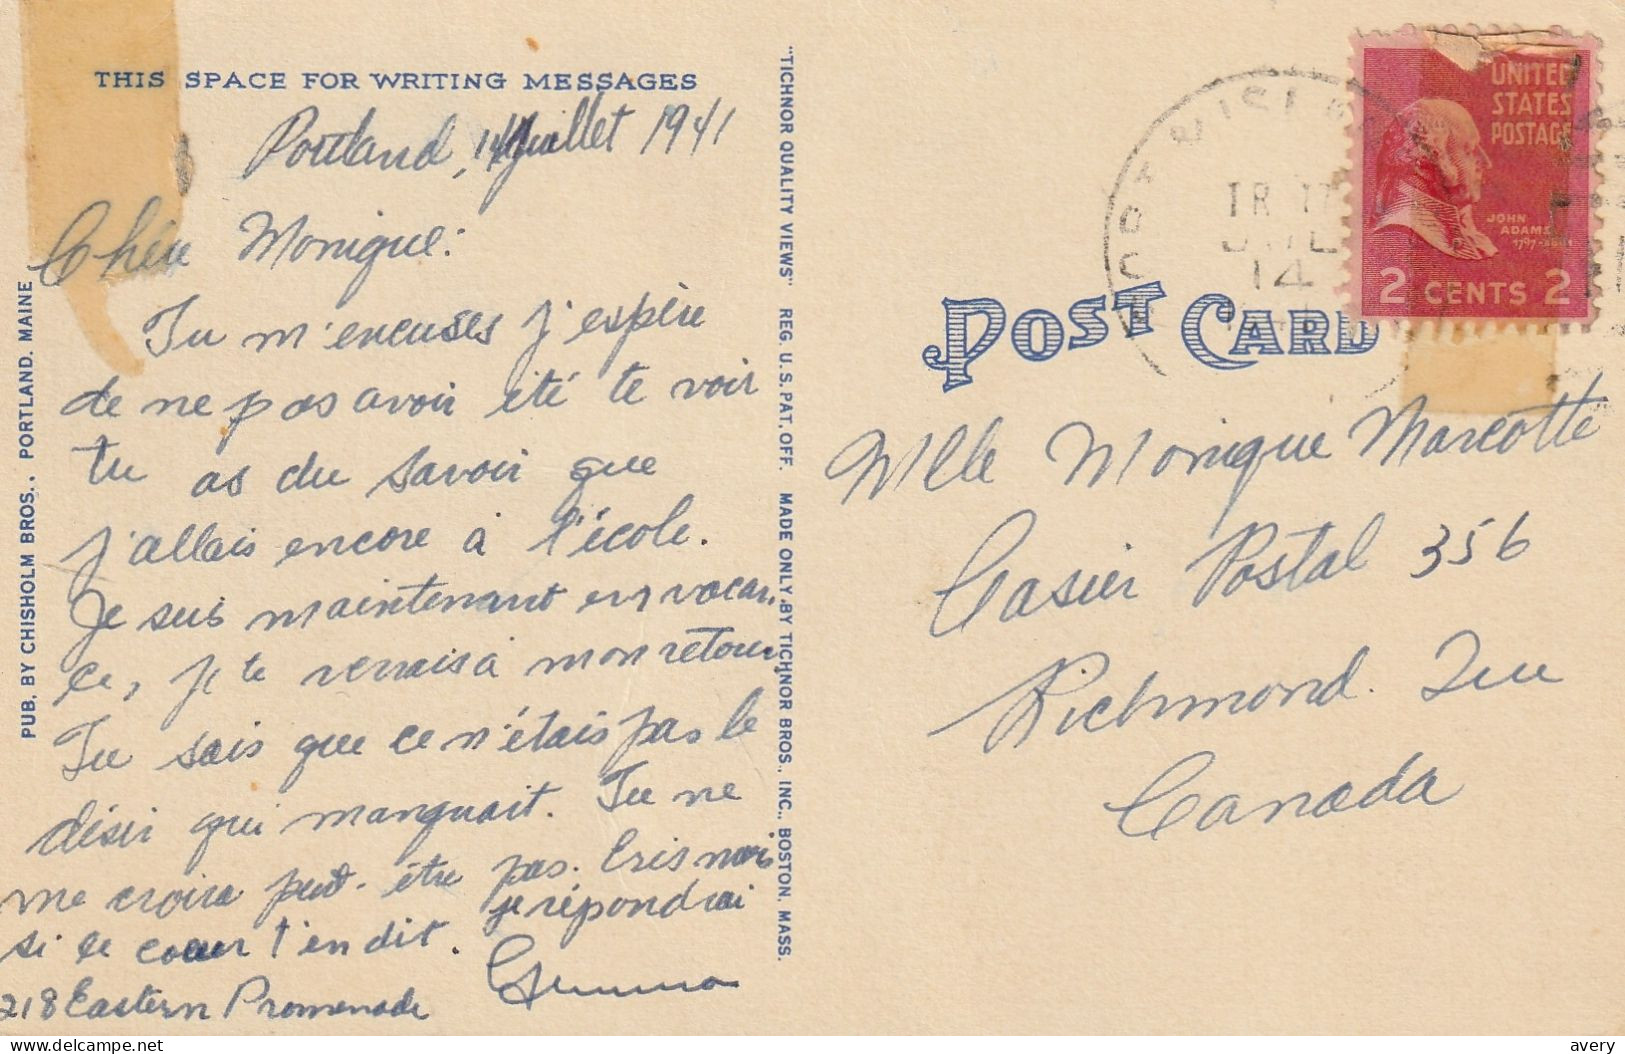 THIS SPACE FOR WRITING MESSAGES
Portland, 14 Juillet 1941
Chère Monique:
Tu m'encuses j'espère
de ne pas avoir été te voir
tu as du savoir que
j'allais encore à l'école.
Je suis maintenant en vacan-
ce, je te verrais à mon retour
Tu sais que ce n'étais pas le
désir qui manquait. Tu ne
me croira peut-être pas. Ecris moi
si le coeur t'en dit. je répondrai
Gemma
218 Eastern Promenade
PUB. BY CHISHOLM BROS., PORTLAND, MAINE
"TICHNOR QUALITY VIEWS" REG. U. S. PAT. OFF. MADE ONLY BY TICHNOR BROS., INC., BOSTON, MASS.
POST CARD
UNITED
STATES
POSTAGE
JOHN
ADAMS
1797-1801
2 CENTS 2
JUL
14
Mlle Monique Marcotte
Casier Postal 356
Richmond. Que
Canada
delcampe.net
avery